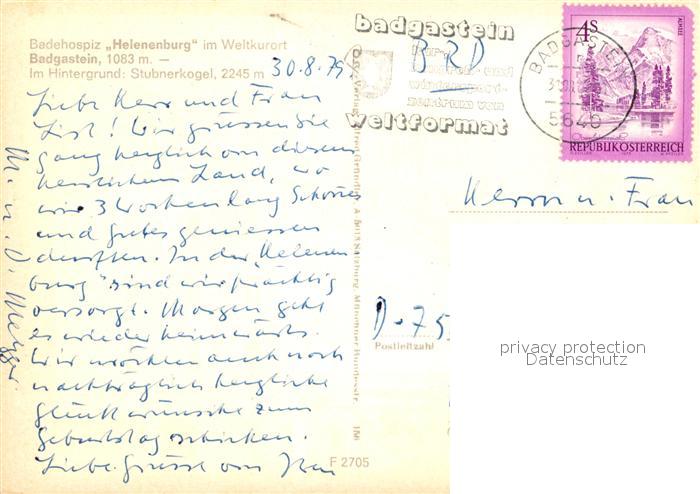 Badehospiz „Helenenburg" im Weltkurort
Badgastein, 1083 m. —
Im Hintergrund: Stubnerkogel, 2245 m
30.8.75.
Liebe Herr und Frau
List! Wir grüssen Sie
ganz herzlich von diesem
herrlichen Land, wo
wir 3 Wochen lang Schönes
und Gutes geniessen
durften. In der „Helenen
burg" sind wir prächtig
versorgt. Morgen geht
es wieder heimwärts.
Wir möchten auch noch
nachträglich herzliche
Glückwünsche zum
Geburtstag schicken.
Liebe Grüsse von Ihren
M. u. O. Metzger
badgastein
wintersport-
zentrum von
weltformat
BRD
BADGASTEIN
5640
4S
ALMSEE
REPUBLIK ÖSTERREICH
Herrn u. Frau
D-75
Postleitzahl
F 2705
privacy protection
Datenschutz